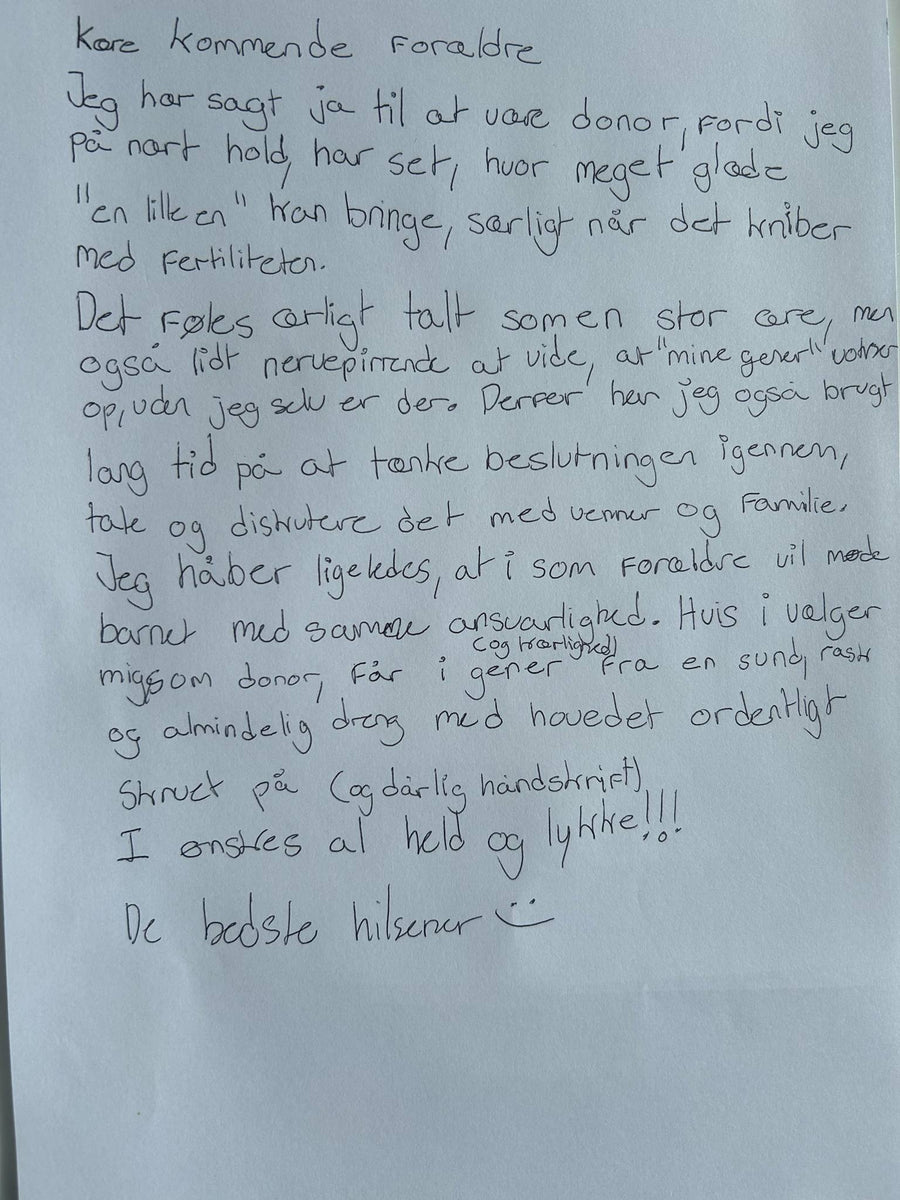 Kære kommende Forældre
Jeg har sagt ja til at være donor, Fordi jeg
på nært hold, har set, hvor meget glæde
"en lille en" kan bringe, særligt når det kniber
med Fertiliteten.
Det Føles ærligt talt som en stor ære, men
også lidt nervepirrende at vide, at "mine gener" vokser
op, uden jeg selv er der. Derfor har jeg også brugt
lang tid på at tænke beslutningen igennem,
tale og diskutere det med venner og Familie.
Jeg håber ligeledes, at i som Forældre vil møde
barnet med samme ansvarlighed. Hvis i vælger
(og kærlighed)
mig som donor, Får i gener Fra en sund, rask
og almindelig dreng med hovedet ordentligt
skruet på (og dårlig håndskrift)
I ønskes al held og lykke!!!
De bedste hilsener :)